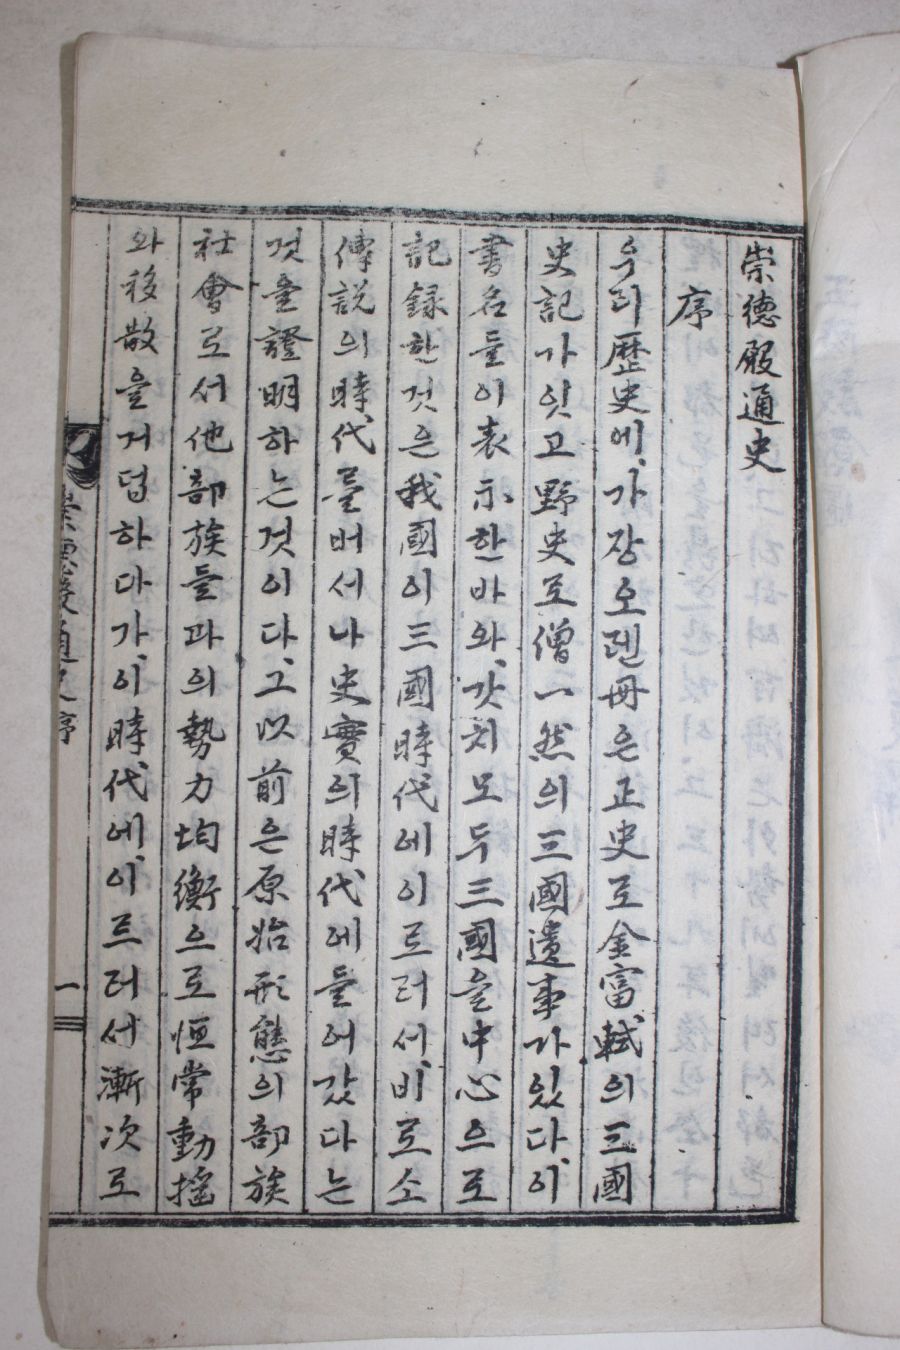 崇德殿通史
序
우리歷史에、가장오랜冊은正史로金富軾의三國
史記가잇고野史로僧一然의三國遺事가있다、이
書名들이表示한바와、갓치모두三國을中心으로
記録한것은我國이三國時代에이르러서、비로소
傳說의時代를버서나史實의時代에들어갔다는
것을證明하는것이다、그以前은原始形態의部族
社會로서他部族들과의勢力均衡으로恒常動搖
와移散을거덥하다가、이時代에、이르러서漸次로
崇德殿通史序
一